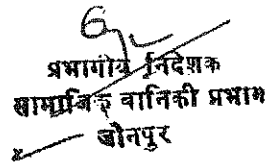 प्रभागीय निदेशक
सामाजिक वानिकी प्रभाग
जौनपुर